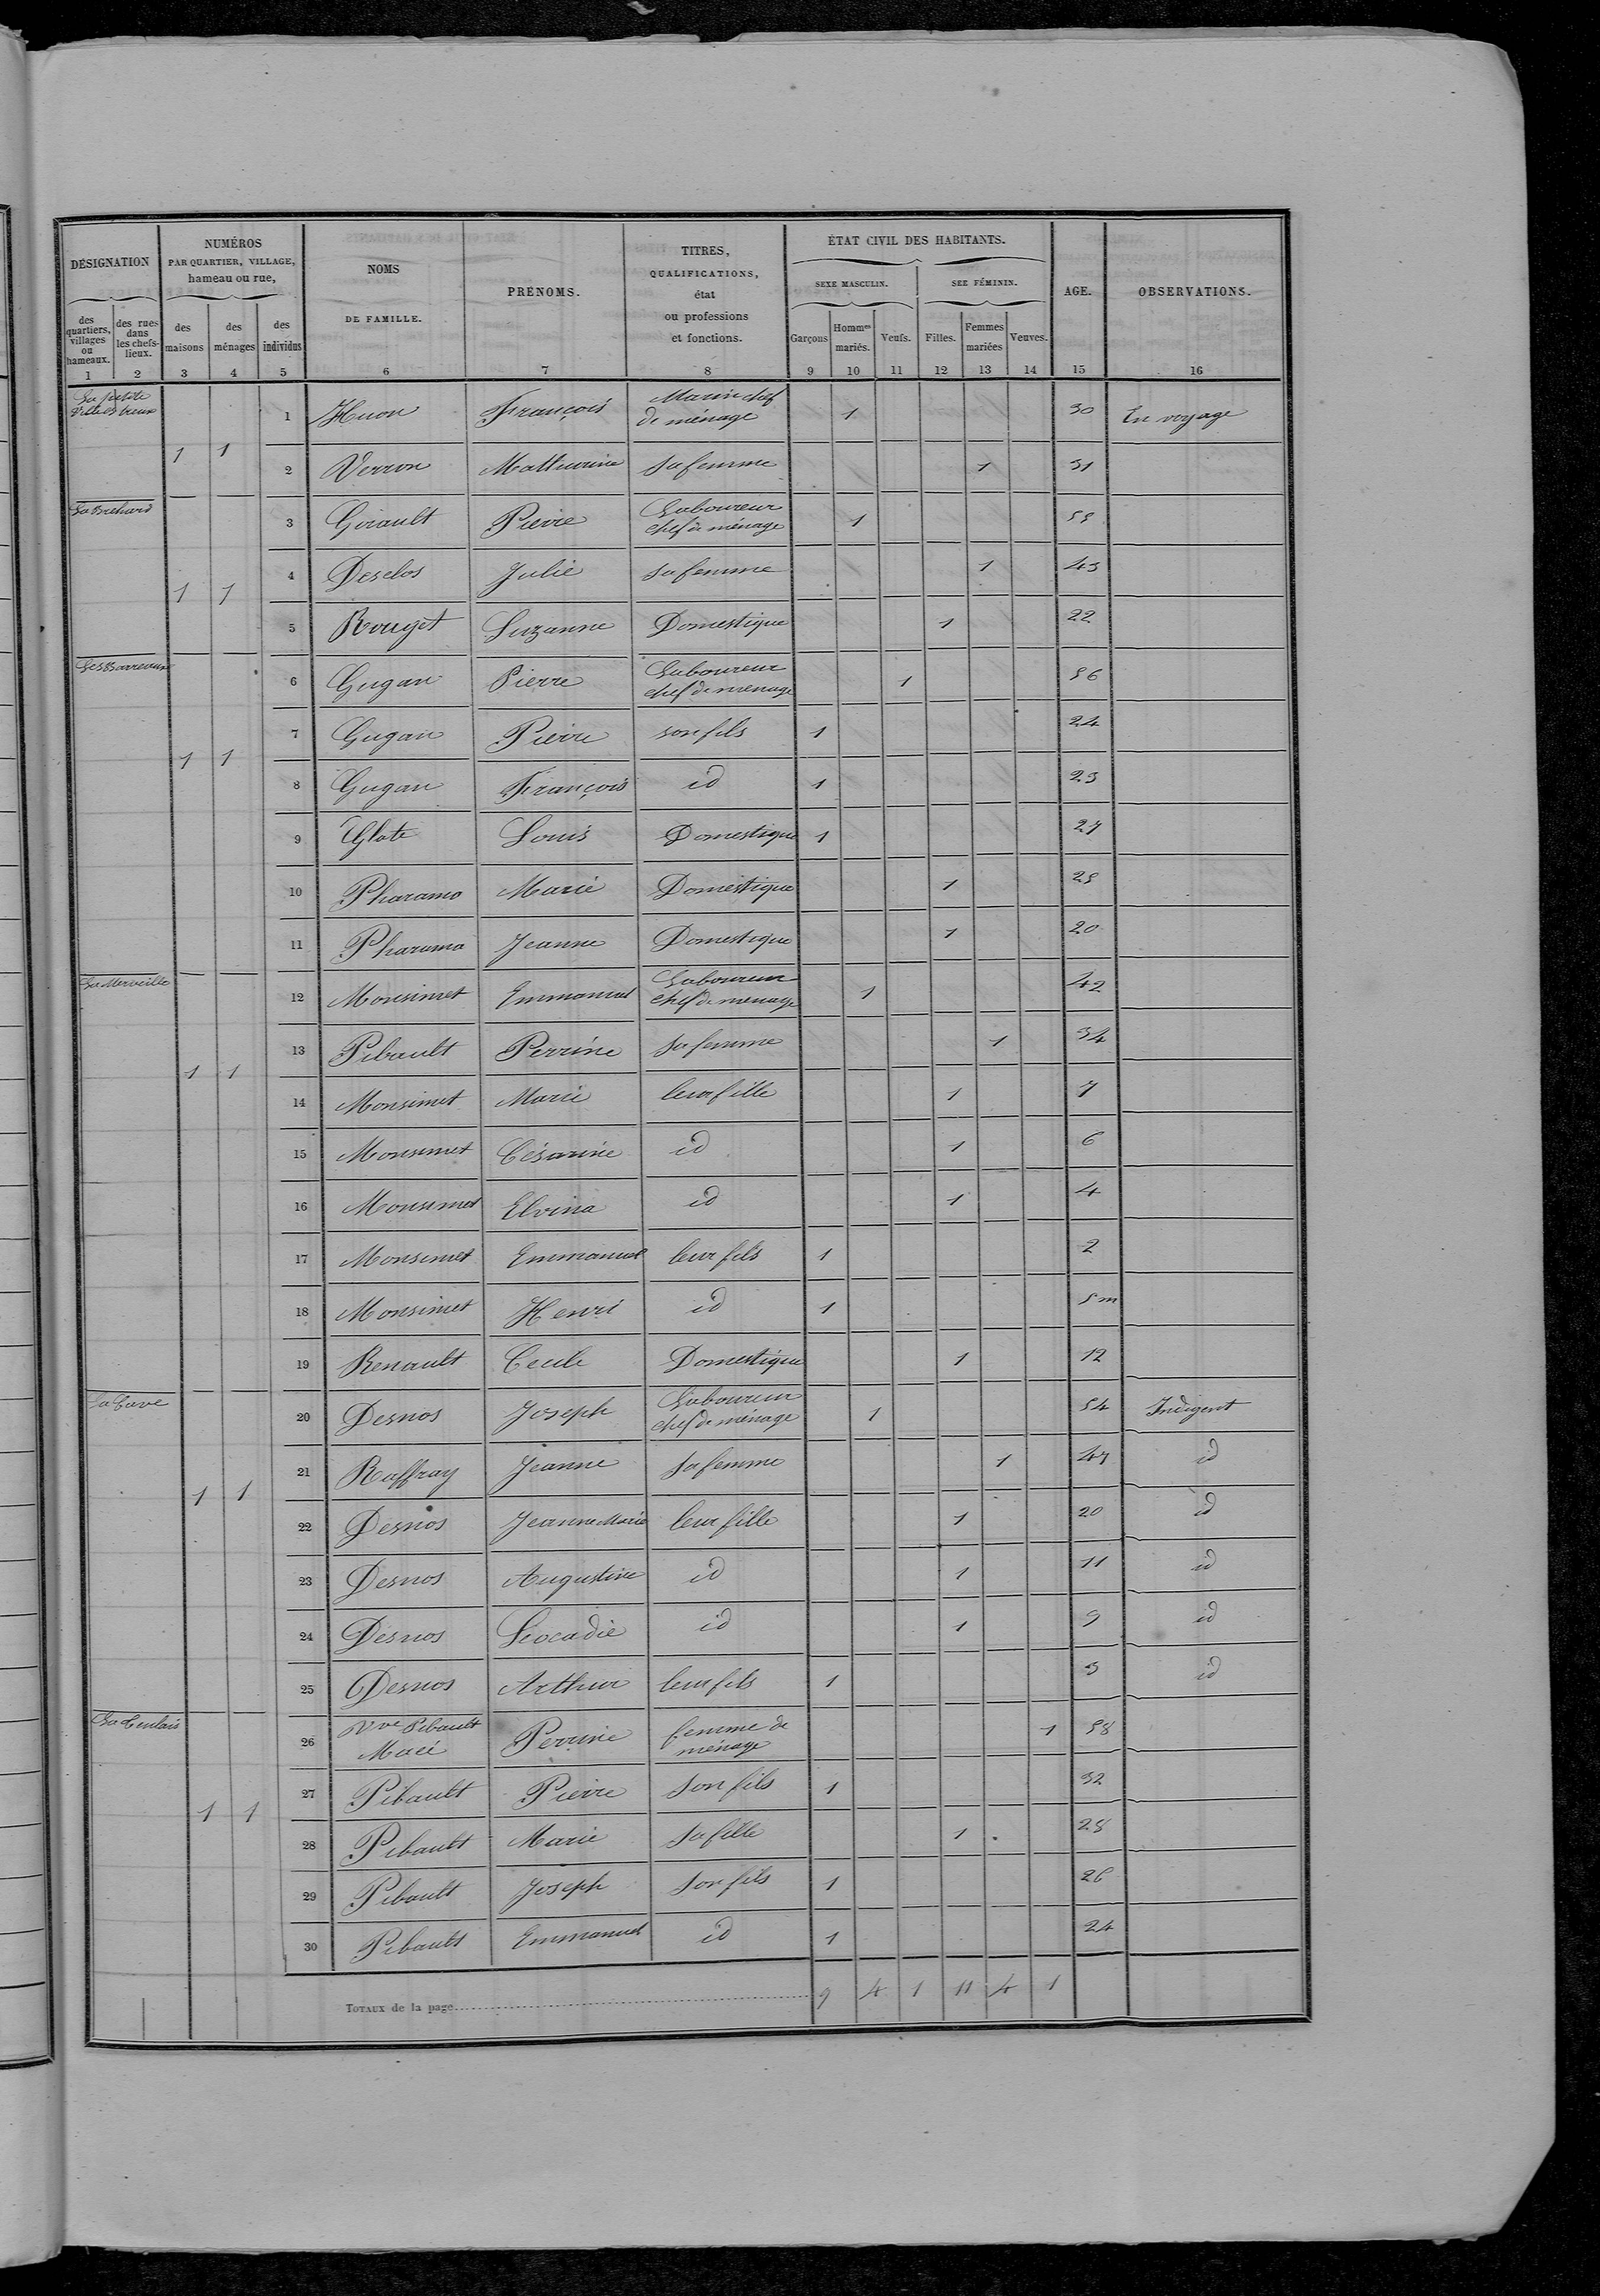 DÉSIGNATION
NUMÉROS
PAR QUARTIER, VILLAGE,
hameau ou rue,
NOMS
DE FAMILLE.
PRÉNOMS.
TITRES,
QUALIFICATIONS,
état
ou professions
et fonctions.
ÉTAT CIVIL DES HABITANTS.
SEXE MASCULIN.
SEE FÉMININ.
AGE.
OBSERVATIONS.
des quartiers, villages ou hameaux.
des rues dans les chefs-lieux.
des maisons
des ménages
des individus
Garçons
Hommes mariés.
Veufs.
Filles.
Femmes mariées
Veuves.
1 2 3 4 5 6 7 8 9 10 11 12 13 14 15 16
La petite
1 Huon François Marin chef de ménage 1 30 En voyage
1 1
2 Verron Mathurine sa femme 1 31
La Brehard
3 Girault Pierre Laboureur chef de ménage 1 55
4 Desclos Julie sa femme 1 43
1 1
5 Rouget Suzanne Domestique 1 22
Les Barreaux
6 Gugan Pierre Laboureur chef de ménage 1 56
7 Gugan Pierre son fils 1 24
1 1
8 Gugan François id 1 23
9 Louis Domestique 1 27
10 Pharamo Marie Domestique 1 25
11 Pharamo Jeanne Domestique 1 20
La Merveille
12 Monsimet Emmanuel Laboureur chef de ménage 1 42
13 Pibault Perrine sa femme 1 34
1 1
14 Monsimet Marie leur fille 1 7
15 Monsimet Césarine id 1 6
16 Monsimet Elvina id 1 4
17 Monsimet Emmanuel leur fils 1 2
18 Monsimet Henri id 1 5 m
19 Renault Cecile Domestique 1 12
La Cave
20 Desnos Joseph Laboureur chef de ménage 1 54 Indigent
21 Raffray Jeanne sa femme 1 47 id
1 1
22 Desnos Jeanne Marie leur fille 1 20 id
23 Desnos Augustine id 1 11 id
24 Desnos Léocadie id 1 9 id
25 Desnos Arthur leur fils 1 3 id
26 Vve Pibault Macé Perrine femme de ménage 1 58
27 Pibault Pierre son fils 1 32
1 1
28 Pibault Marie sa fille 1 28
29 Pibault Joseph son fils 1 26
30 Pibault Emmanuel id 1 24
TOTAUX de la page 9 4 1 11 4 1